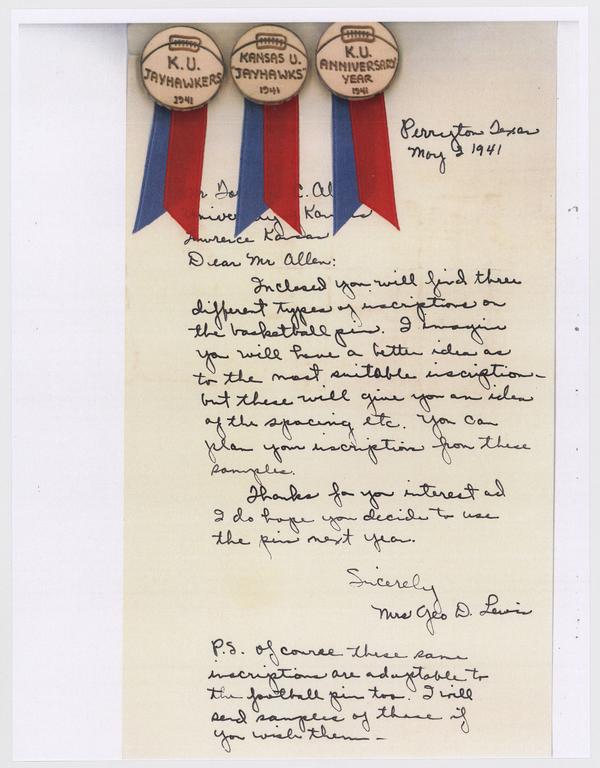 K.U.
JAYHAWKERS
1941
KANSAS U.
"JAYHAWKS"
1941
K.U.
ANNIVERSARY
YEAR
1941
Perryton Texas
May 2 1941
C. Al
Univer y Kansas
Lawrence Kansas
Dear Mr Allen:
Inclosed you will find three
different types of inscriptions on
the basketball pin. I imagine
you will have a better idea as
to the most suitable inscription -
but these will give you an idea
of the spacing etc. You can
plan your inscription from these
samples.
Thanks for you interest ad
I do hope you decide to use
the pin next year.
Sincerely
Mrs Geo D. Lewis
P.S. Of course these same
inscriptions are adaptable to
the football pin too. I will
send samples of these if
you wish them -